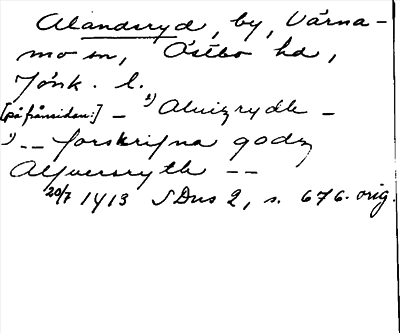 Alandsryd, by, Värna-
mo sn, Östbo hd,
Jönk. l.
[på frånsidan:] – 2) Aluizrydh –
1) -- forskrifna godz
Alffuersryth --
20/7 1413 SDns 2, s. 676. orig.